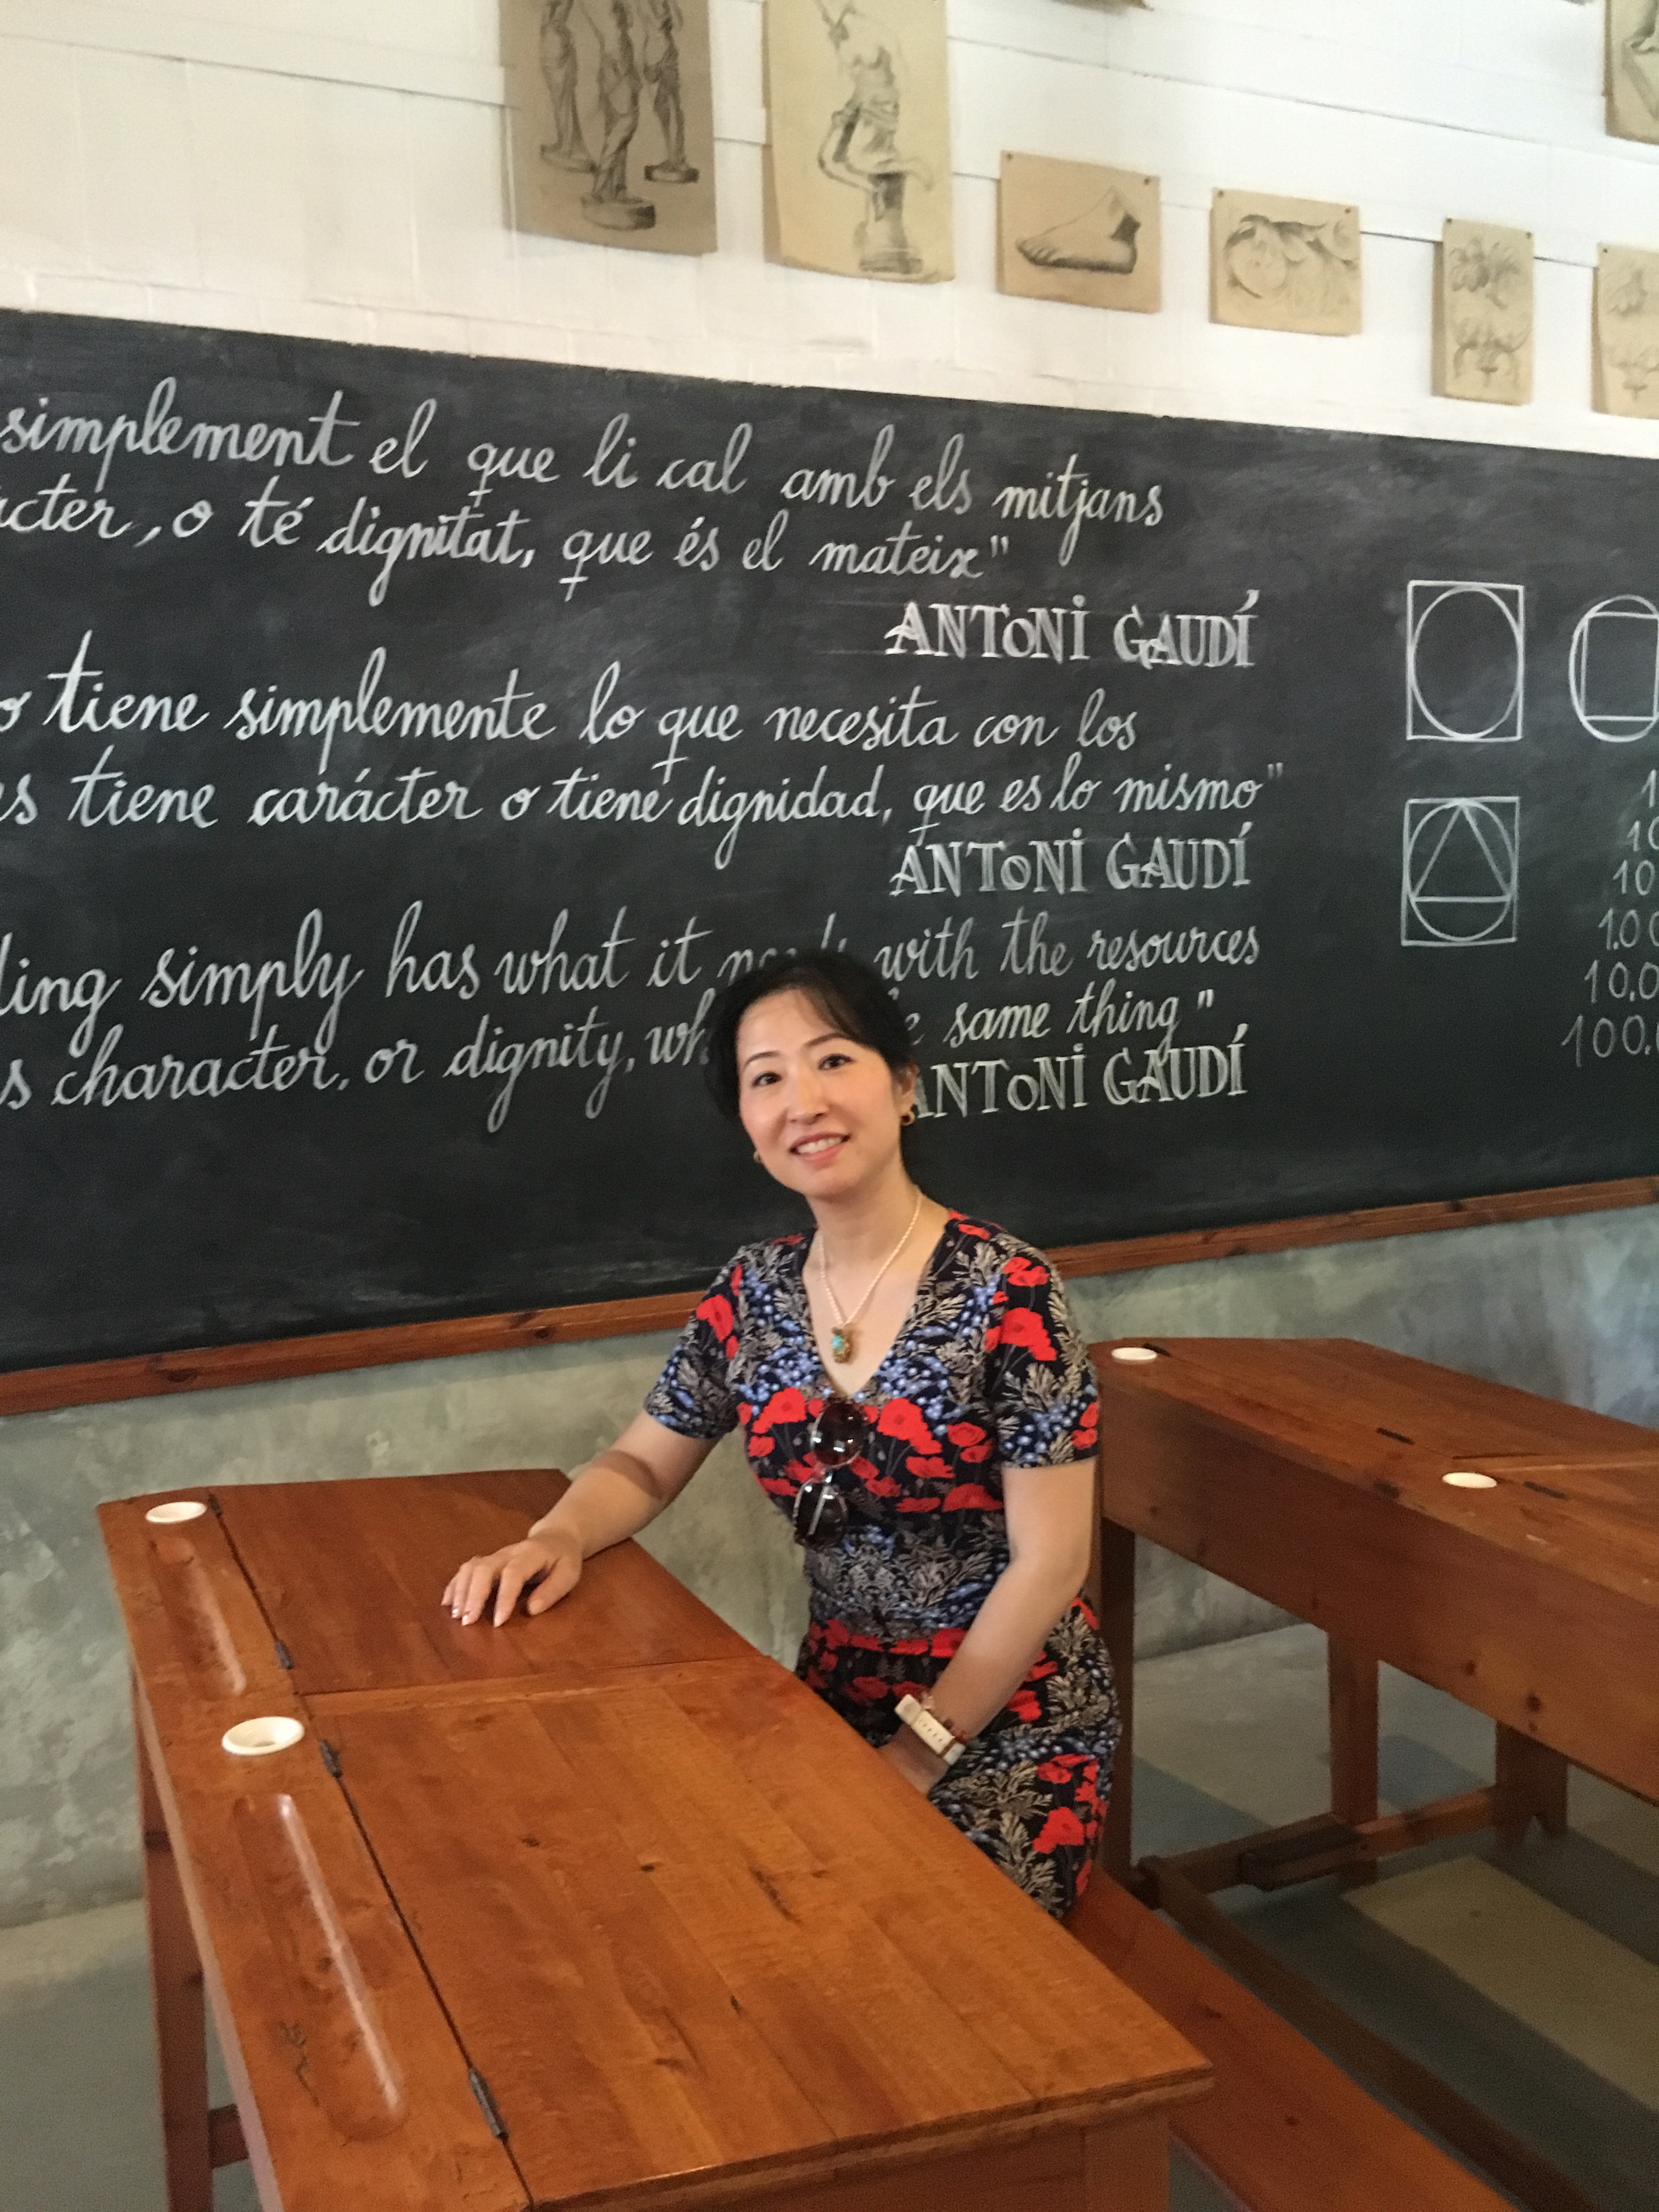 simplement el que li cal amb els mitjans
àcter, o té dignitat, que és el mateix"
ANTONI GAUDÍ
o tiene simplemente lo que necesita con los
es tiene carácter o tiene dignidad, que es lo mismo"
ANTONI GAUDÍ
ding simply has what it with the resources
s character, or dignity, same thing"
ANTONI GAUDÍ
1
10
10
1.00
10.0
100.